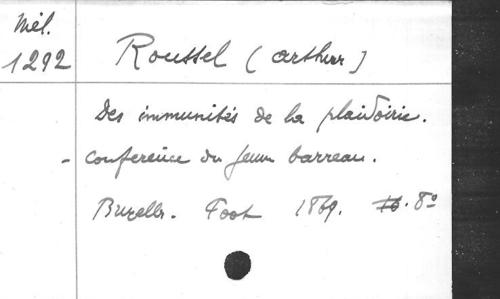 Mél.
1292
Roussel (Arthur)
Des immunités de la plaidoirie.
- Conférence du jeune barreau.
Bruxelles. Foot 1869. 8º